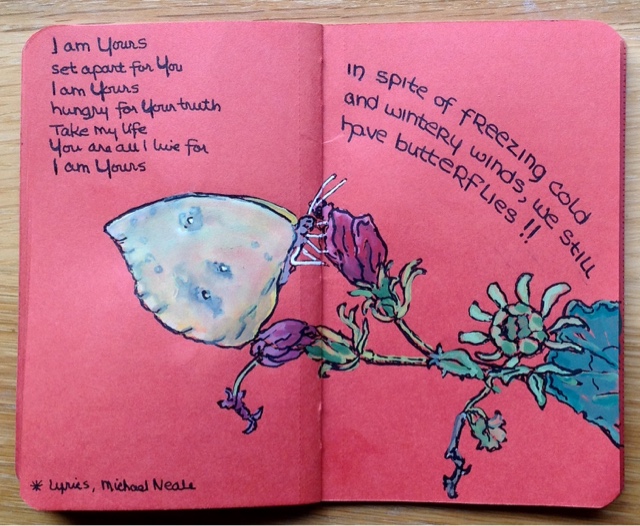 I am Yours
set apart for You
I am Yours
hungry for Your truth
Take my life
You are all I live for
I am Yours
* Lyrics, Michael Neale
in spite of freezing cold
and wintery winds, we still
have butterflies !!